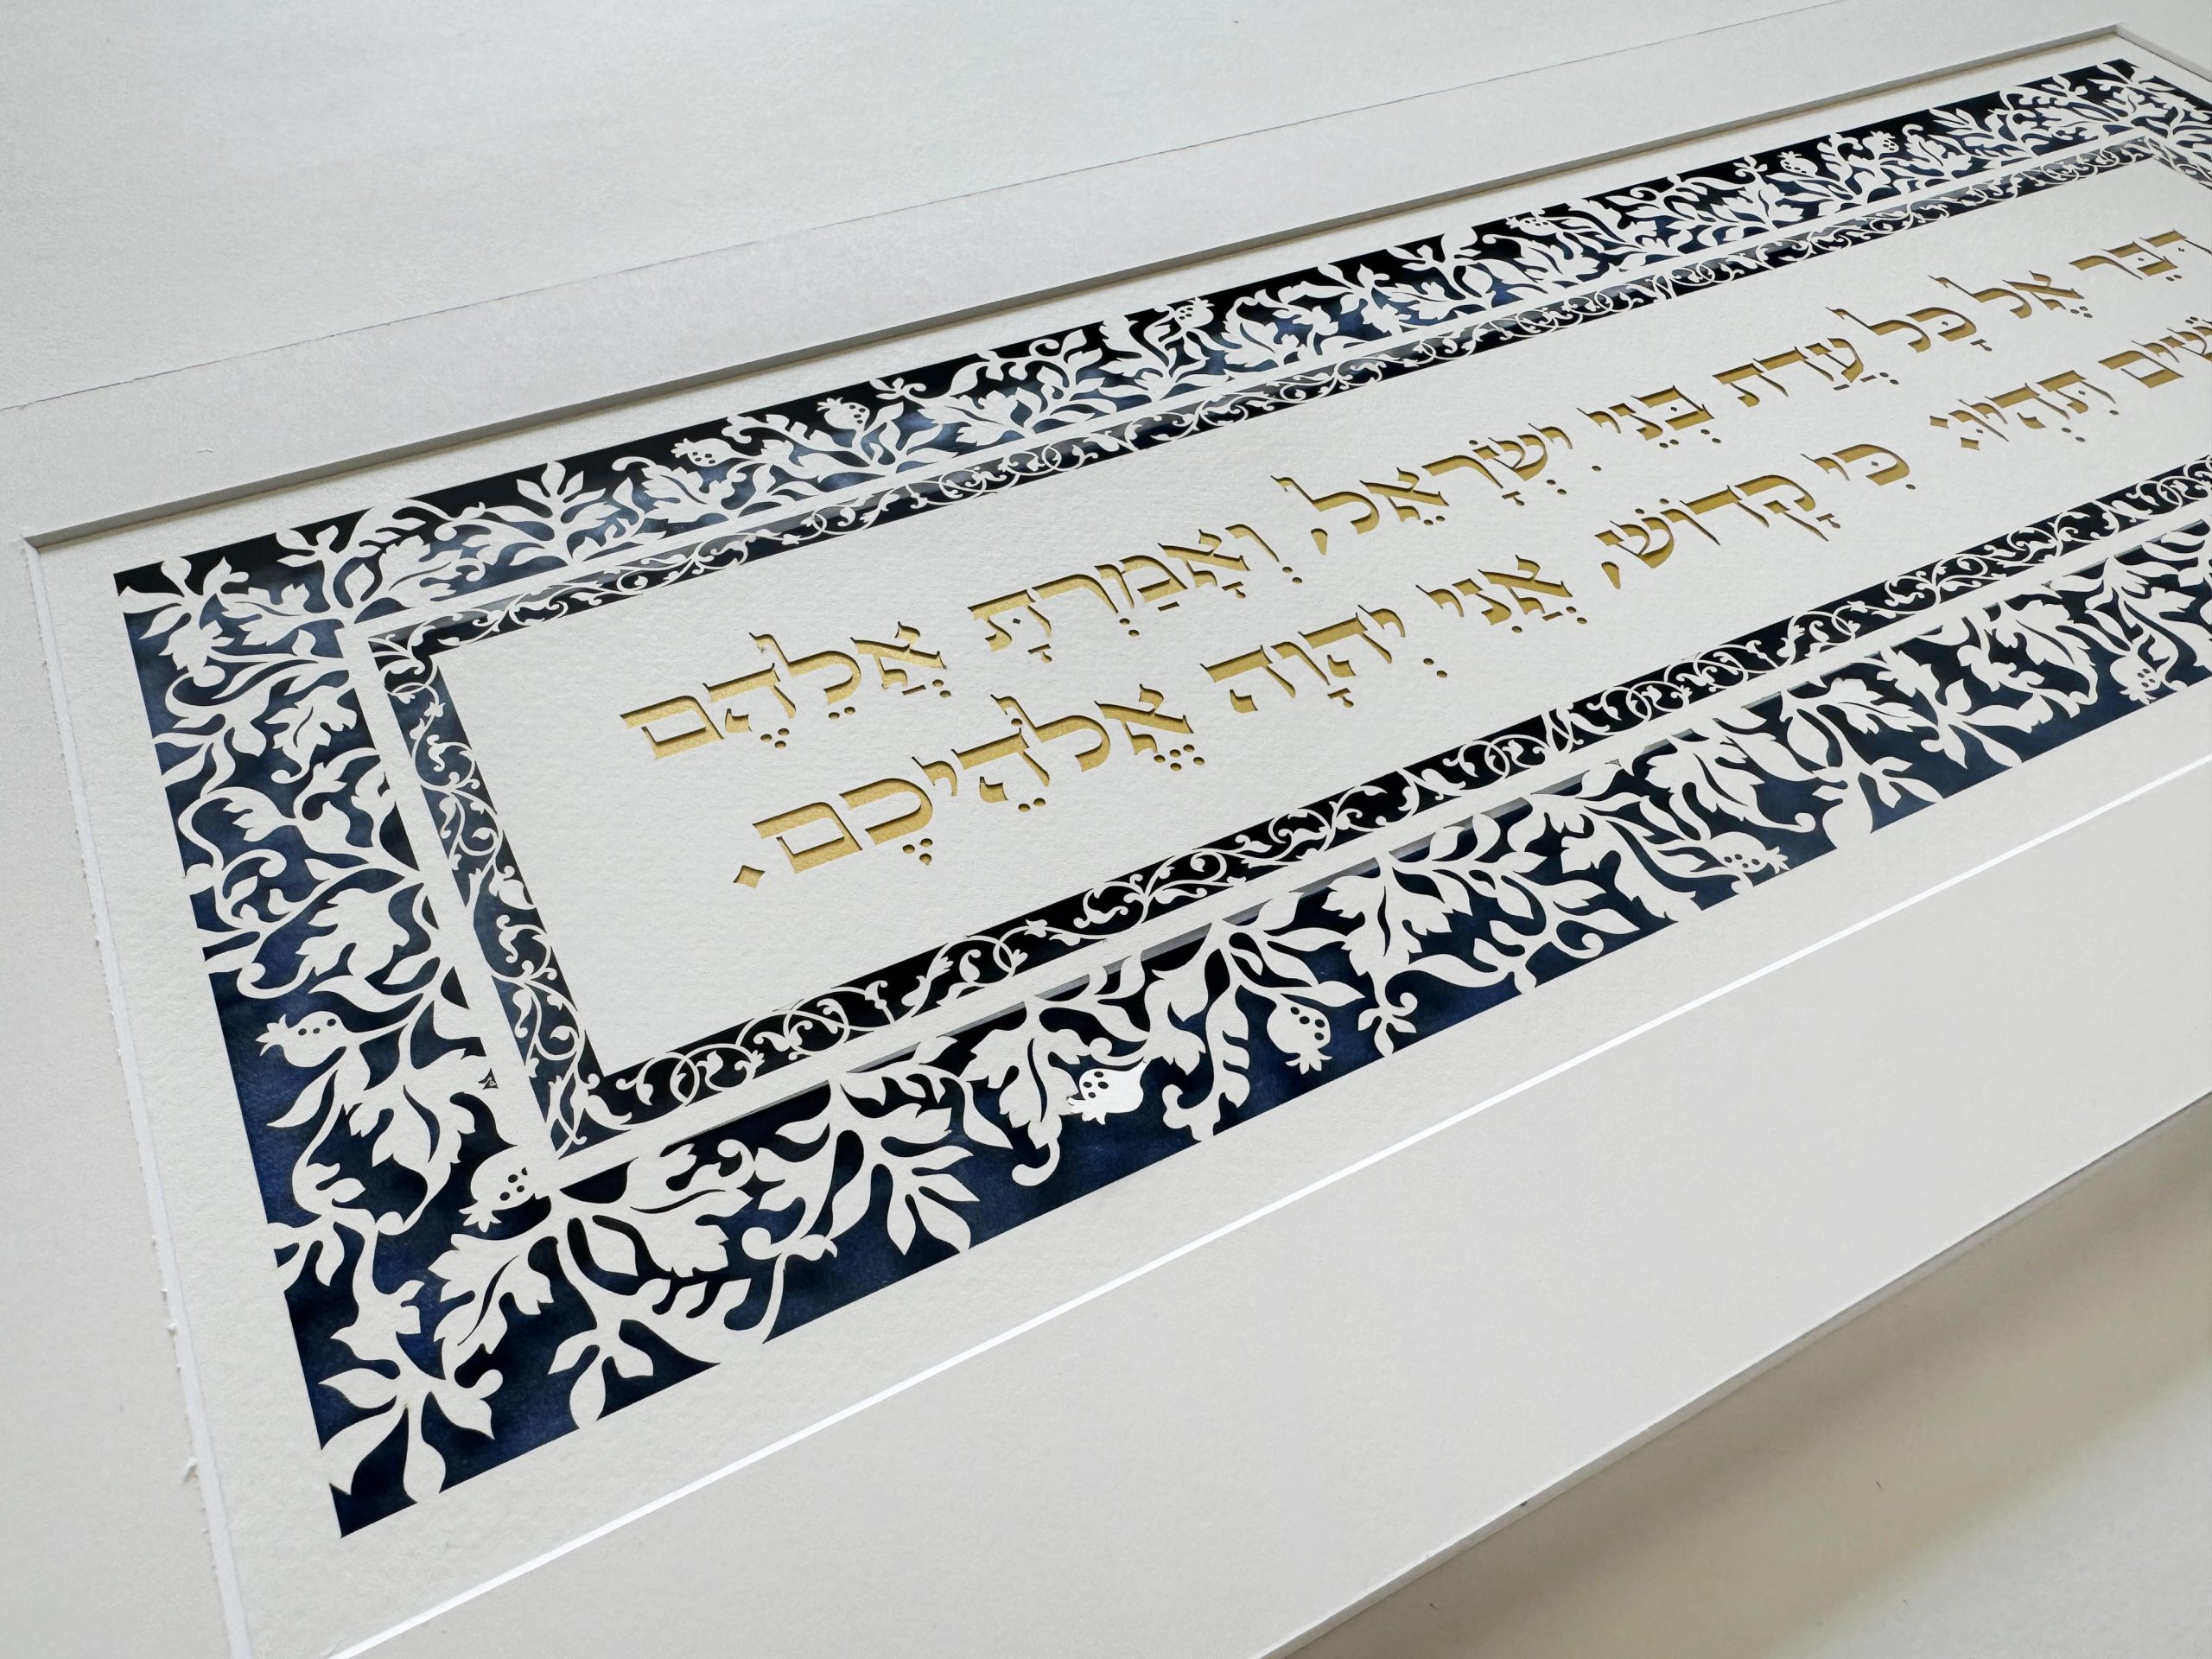 דַּבֵּר אֶל כָּל עֲדַת בְּנֵי יִשְׂרָאֵל, וְאָמַרְתָּ אֲלֵהֶם
תִּהְיוּ: כִּי קָדוֹשׁ, אֲנִי יְהוָה אֱלֹהֵיכֶם.